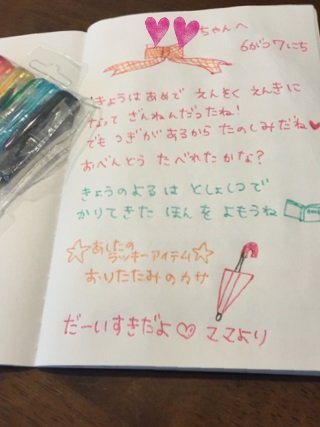 ちゃんへ
6がつ7にち
きょうはあめで えんそく えんきに
なって ざんねんだったね!
でも つぎがあるから たのしみだね♥
おべんとう たべれたかな?
きょうのよるは としょしつで
かりてきた ほんを よもうね
☆あしたの
ラッキーアイテム☆
おりたたみのカサ
だーいすきだよ♡ ママより